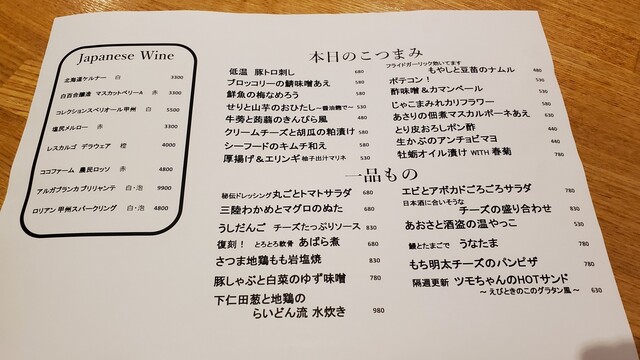 Japanese Wine
北海道ケルナー 白 3300
白百合醸造 マスカットベリーA 赤 3300
コレクションスペリオール甲州 白 5500
塩尻メルロー 赤 3300
レスカルゴ デラウェア 橙 4000
ココファーム 農民ロッソ 赤 4800
アルガブランカ ブリリャンテ 白・泡 9900
ロリアン 甲州スパークリング 白・泡 4800
本日のこつまみ
低温 豚トロ刺し 680
ブロッコリーの鯖味噌あえ 580
鮮魚の梅なめろう 580
せりと山芋のおひたし～醤油麹で～ 530
牛蒡と蒟蒻のきんぴら風 480
クリームチーズと胡瓜の粕漬け 580
シーフードのキムチ和え 580
厚揚げ&エリンギ 柚子出汁マリネ 530
フライドガーリック効いてます
もやしと豆苗のナムル 480
ポテコン! 530
酢味噌&カマンベール 530
じゃこまみれカリフラワー 580
あさりの佃煮マスカルポーネあえ 630
とり皮おろしポン酢 440
生かぶのアンチョビマヨ 440
牡蛎オイル漬け WITH 春菊 780
一品もの
秘伝ドレッシング 丸ごとトマトサラダ 680
三陸わかめとマグロのぬた 680
うしだんご チーズたっぷりソース 830
復刻! とろとろ軟骨 あばら煮 680
さつま地鶏もも岩塩焼 830
豚しゃぶと白菜のゆず味噌 780
下仁田葱と地鶏の
らいどん流 水炊き 980
エビとアボカドごろごろサラダ 780
日本酒に合いそうな
チーズの盛り合わせ 830
あおさと酒盗の温やっこ 530
鰻とたまごで うなたま 780
もち明太チーズのパンピザ 780
隔週更新 ツモちゃんのHOTサンド
～ えびときのこのグラタン風 ～ 630